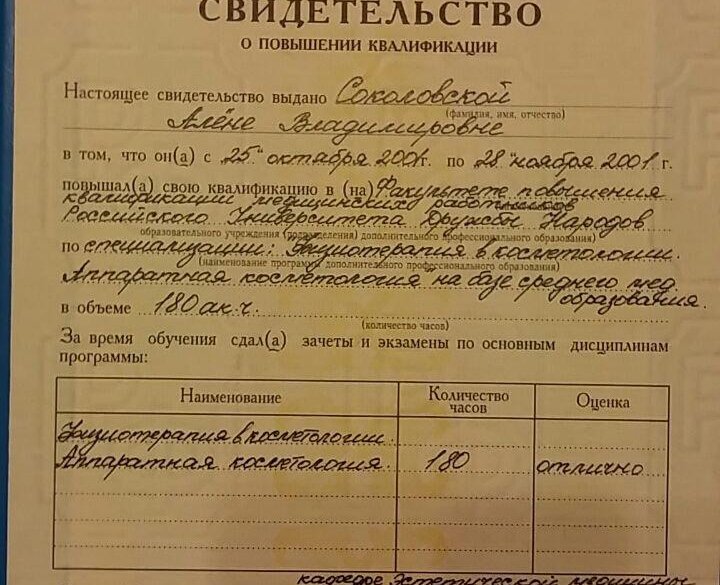 СВИДЕТЕЛЬСТВО
О ПОВЫШЕНИИ КВАЛИФИКАЦИИ
Настоящее свидетельство выдано Соколовской
(фамилия, имя, отчество)
Алёне Владимировне
в том, что он(а) с 25 " октября 2001г. по 28 " ноября 2001 г.
повышал(а) свою квалификацию в (на) Факультете повышения
квалификации медицинских работников
Российского Университета Дружбы Народов
образовательного учреждения (подразделения) дополнительного профессионального образования)
по специализации: Физиотерапия в косметологии.
(наименование программы дополнительного профессионального образования)
Аппаратная косметология на базе среднего мед.
образования.
в объеме 180 ак.ч.
(количество часов)
За время обучения сдал(а) зачеты и экзамены по основным дисциплинам
программы:
Наименование Количество часов Оценка
Физиотерапия в косметологии.
Аппаратная косметология. 180 отлично
кафедре Эстетической медицины